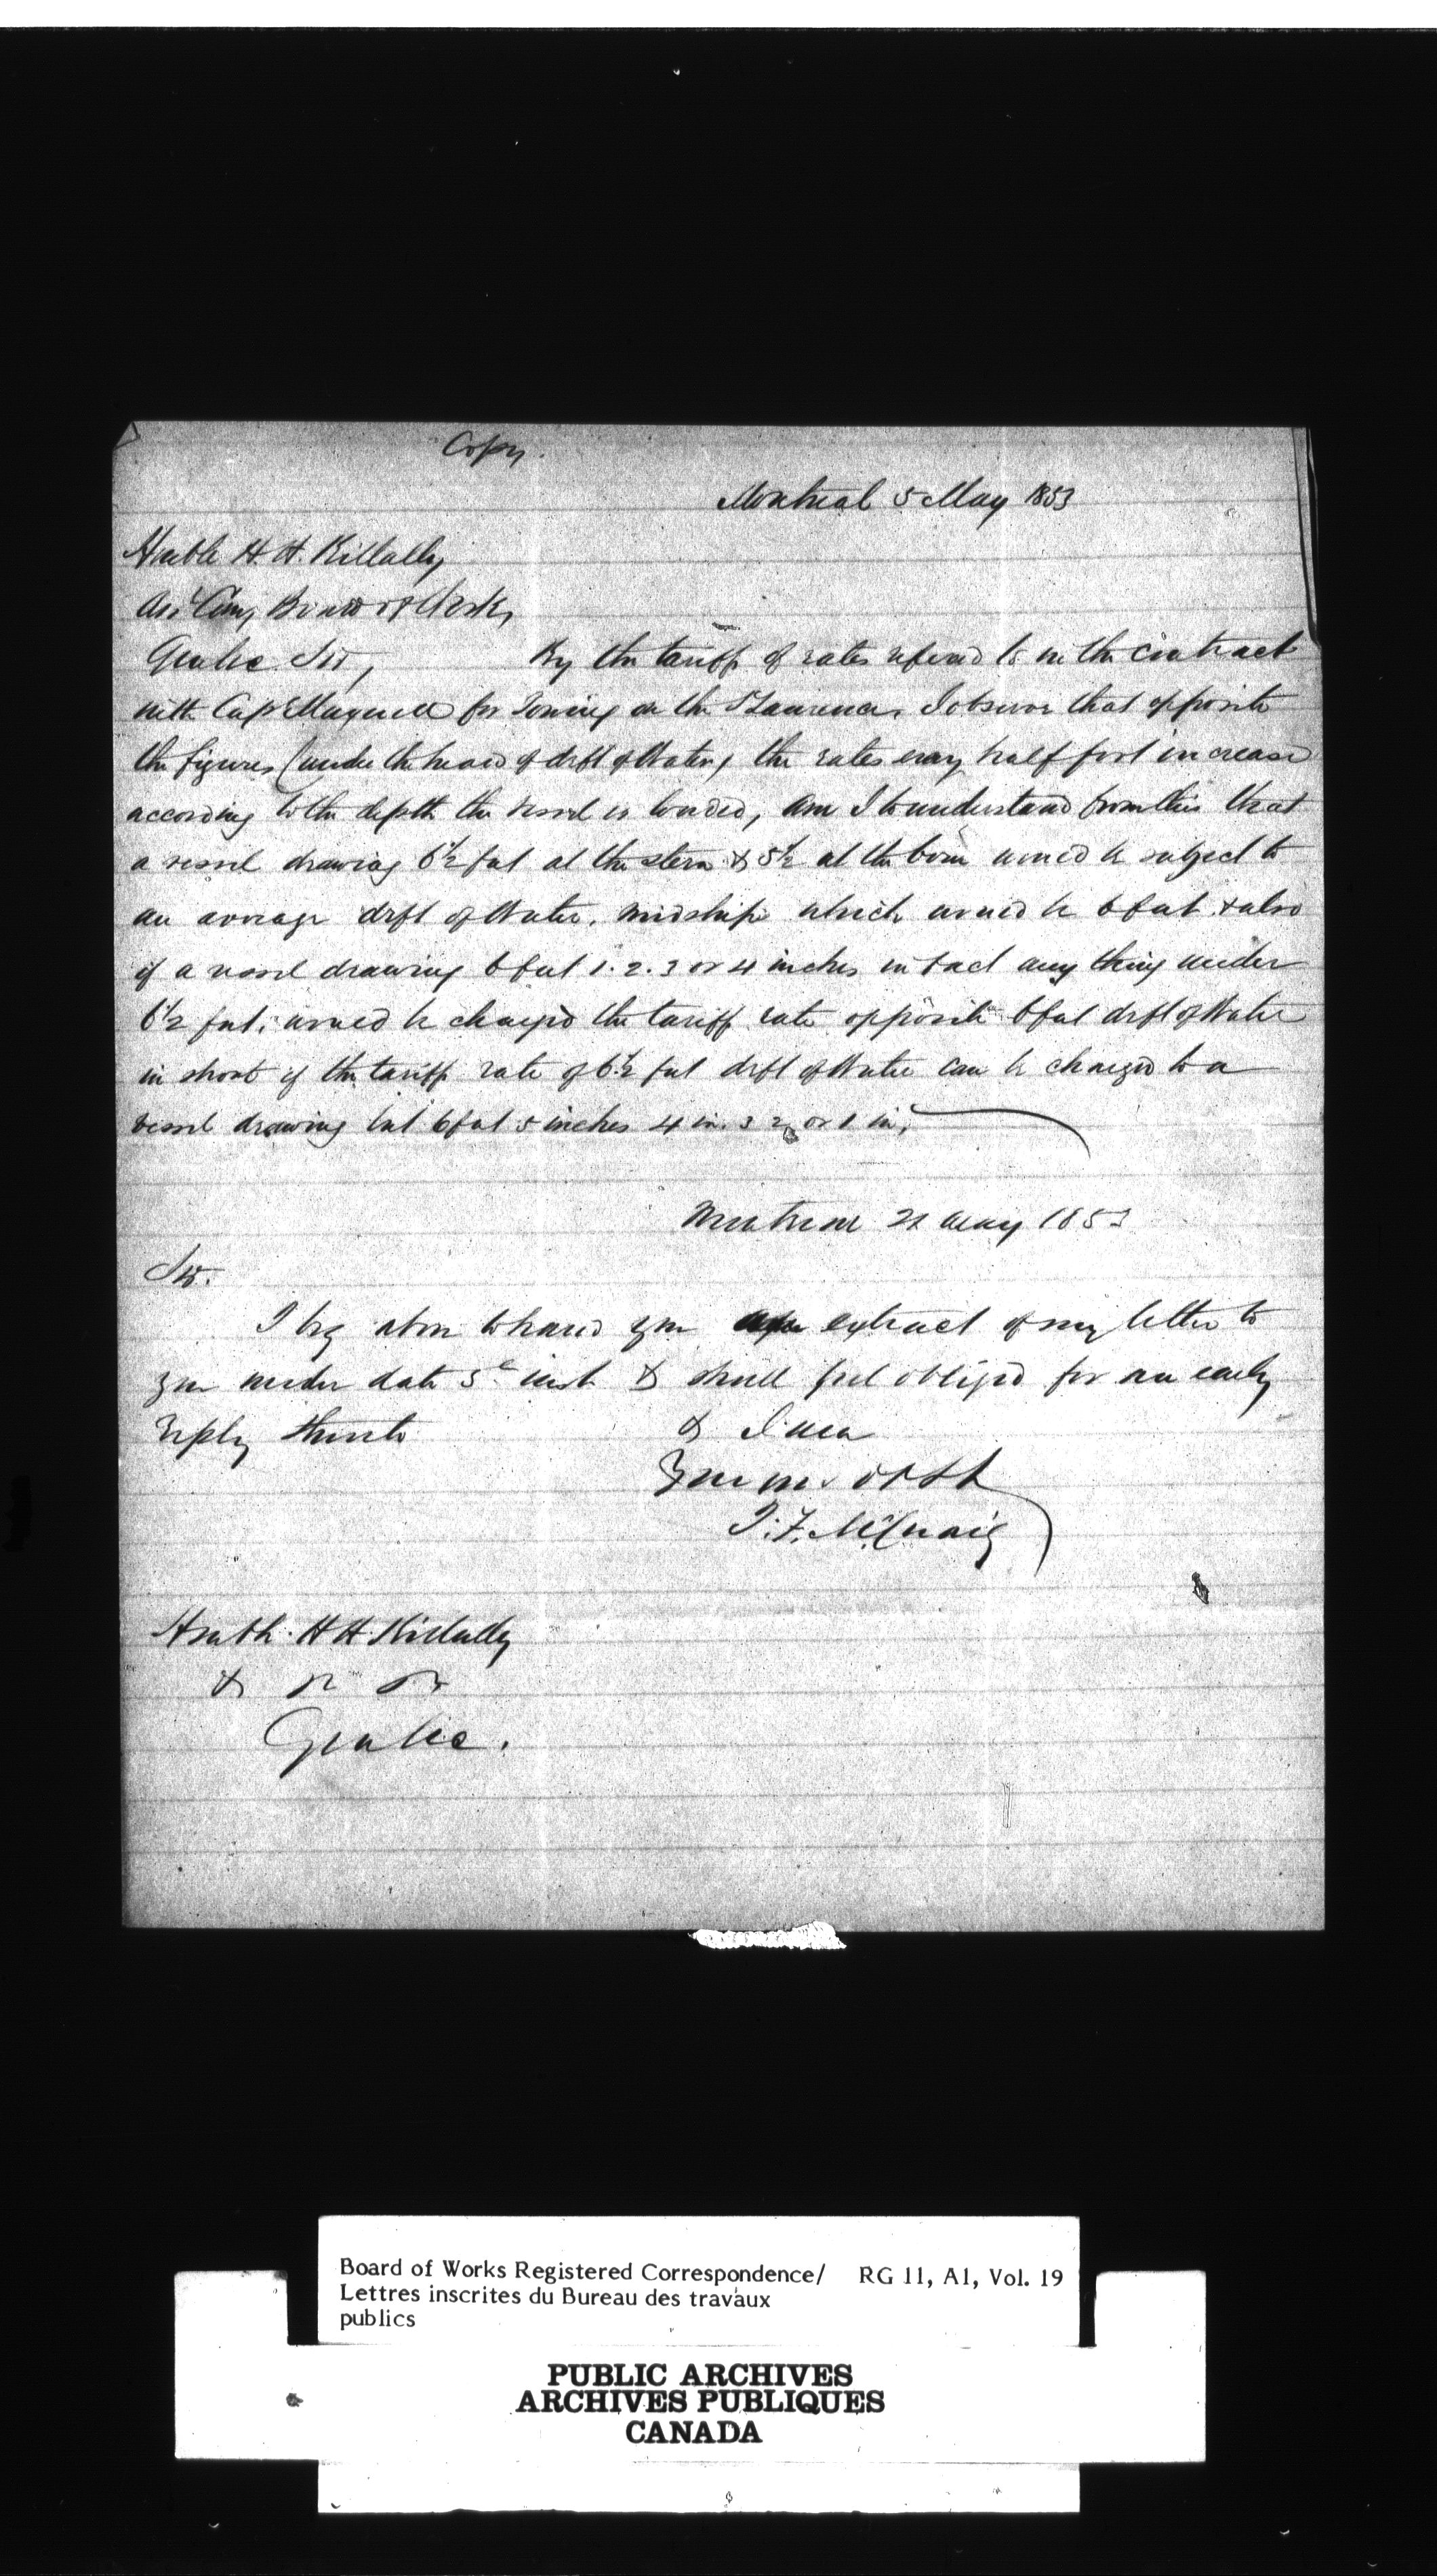 Copy.
Montreal 5 May 1853
Honble H. H. Killally,
Asst Comr Board of Works,
Quebec Sir, By the tariff of rates referred to in the contract
with Cap Maxwell for Towing on the St Lawrence, I observe that opposite
the figures (under the head of drft of Water) the rates every half foot increase
according to the depth the vessel is loaded, am I to understand from this that
a vessel drawing 6½ feet at the stern & 5½ at the bow would be subject to
an average drft of Water, midships which would be 6 feet & also
if a vessel drawing 6 feet 1. 2. 3 or 4 inches in fact any thing under
6½ feet, would be charged the tariff rate opposite 6 feet drft of Water
in short if the tariff rate of 6½ feet drft of Water can be charged to a
vessel drawing but 6 feet 5 inches 4 in. 3 2 or 1 in,
Montreal 21 May 1853
Sir.
I beg above to hand you extract of my letter to
you under date 5th inst & shall feel obliged for an early
Reply thereto & I am
Your mo obt St
J. F. McCuaig
Honble. H H Killally
&
Quebec.
Board of Works Registered Correspondence/ RG 11, A1, Vol. 19
Lettres inscrites du Bureau des travaux
publics
PUBLIC ARCHIVES
ARCHIVES PUBLIQUES
CANADA